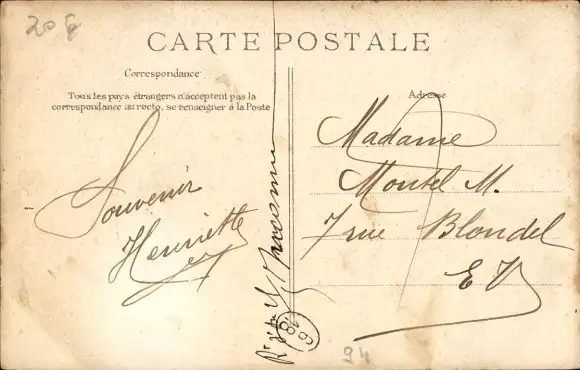 CARTE POSTALE
Correspondance
Tous les pays étrangers n'acceptent pas la
correspondance au recto, se renseigner à la Poste
Adresse
Souvenir
Henriette
Madame
Montel M.
7 rue Blondel
E V
94